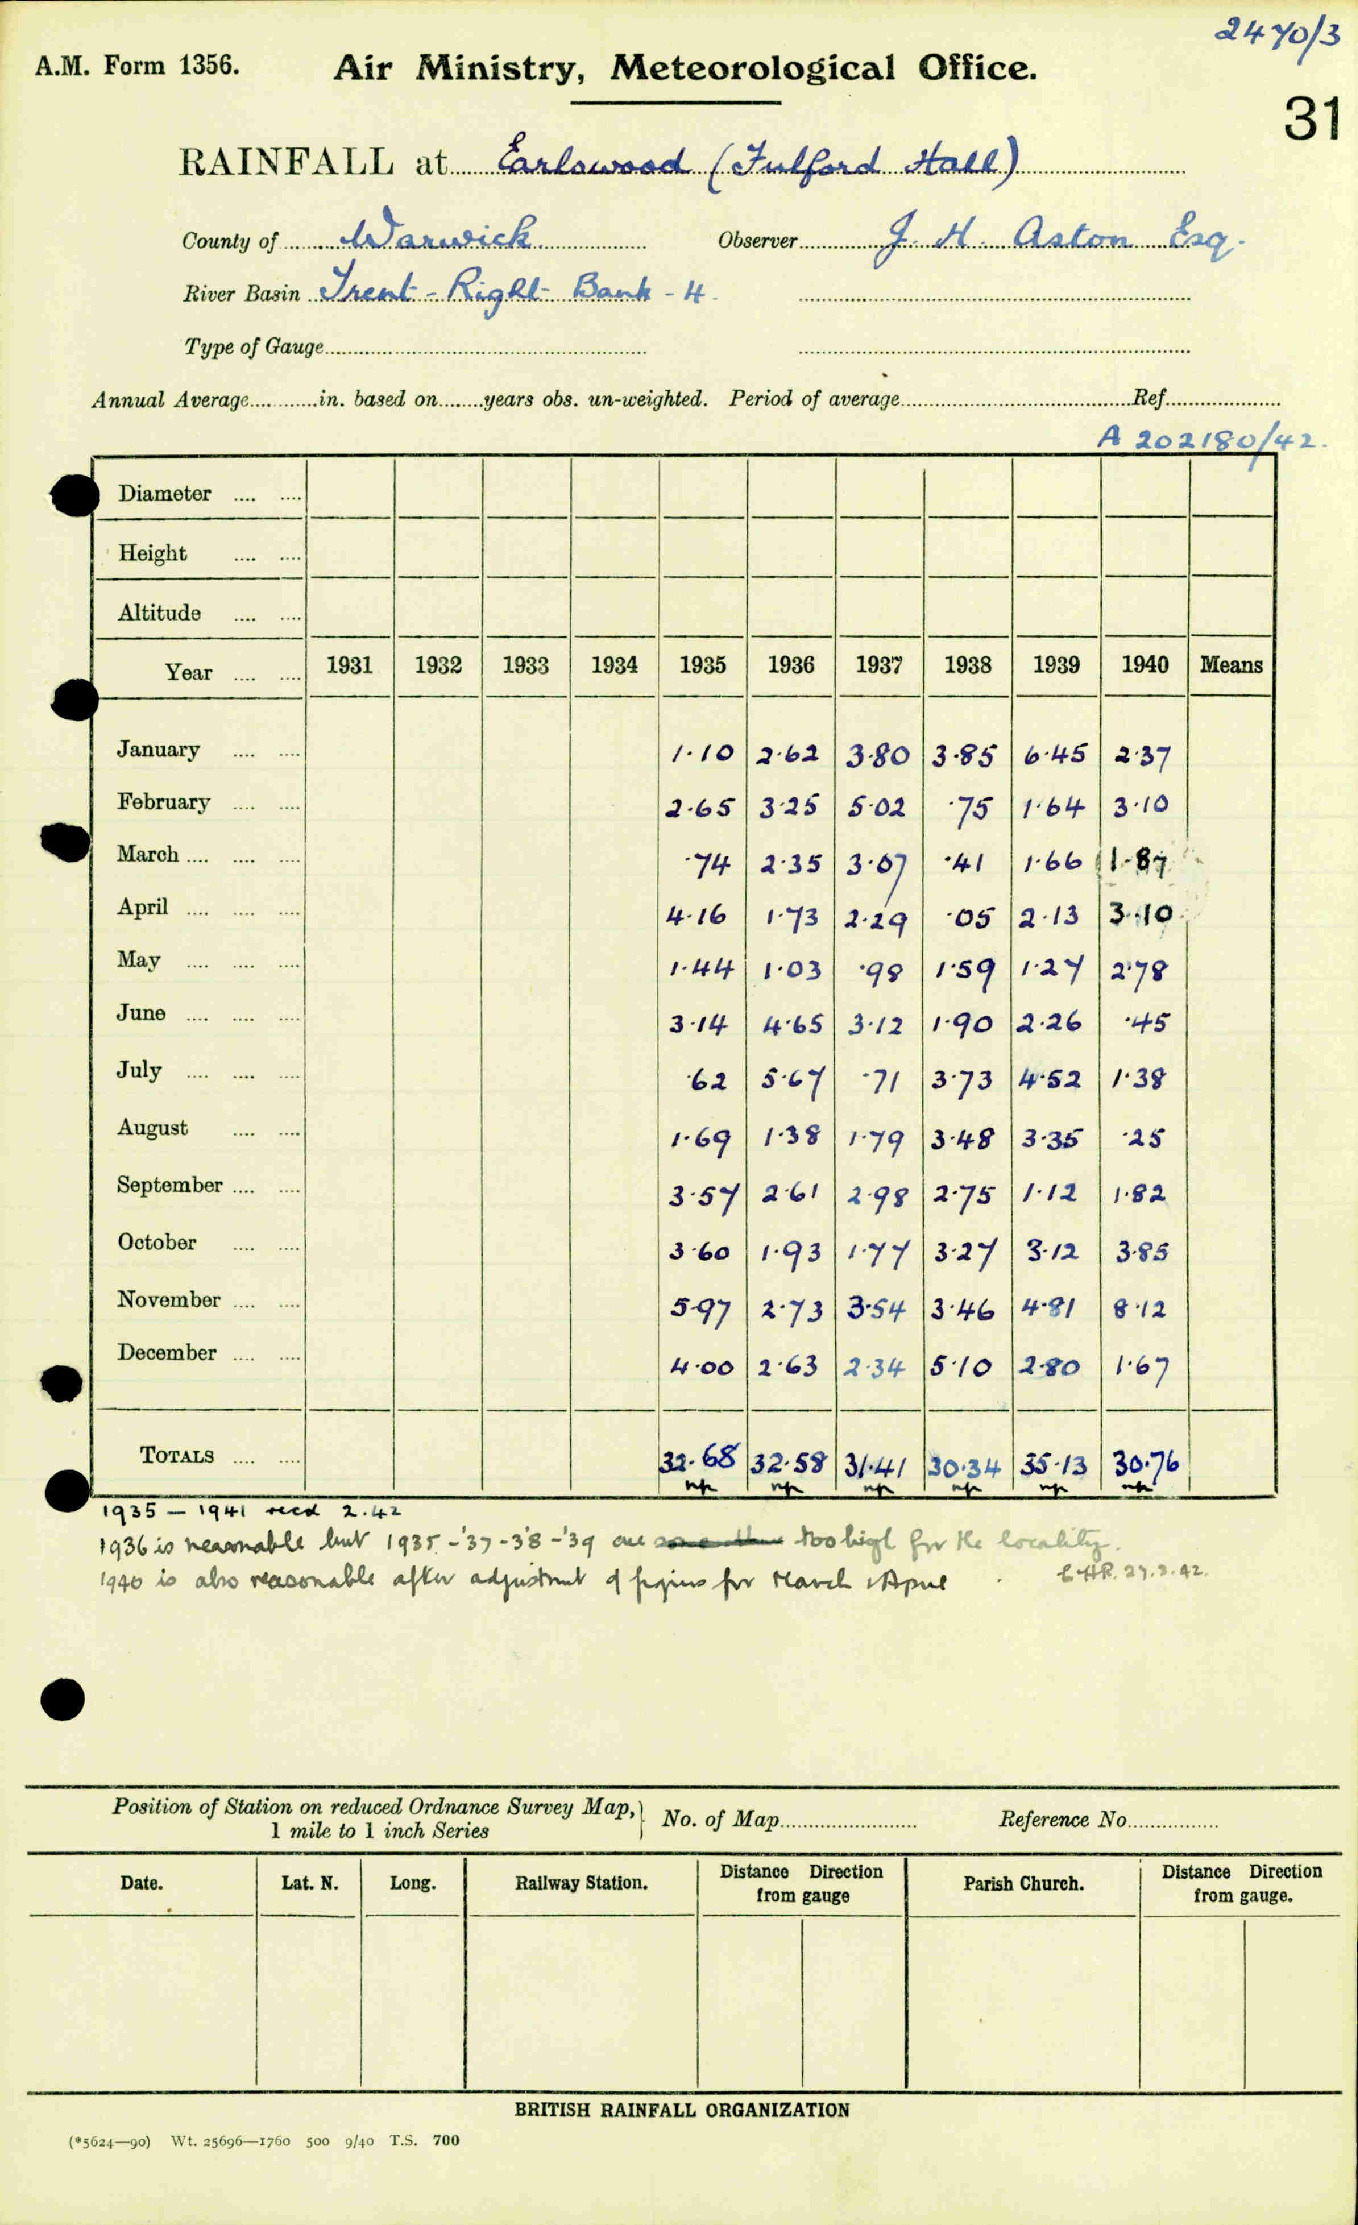 2470/3
A.M. Form 1356. Air Ministry, Meteorological Office.
31
RAINFALL at Earlswood (Fulford Hall)
County of Warwick Observer J. H. Aston Esq.
River Basin Trent - Right Bank - 4.
Type of Gauge
Annual Average in. based on years obs. un-weighted. Period of average Ref.
A 202180/42.
Diameter
Height
Altitude
Year 1931 1932 1933 1934 1935 1936 1937 1938 1939 1940 Means
January 1.10 2.62 3.80 3.85 6.45 2.37
February 2.65 3.25 5.02 .75 1.64 3.10
March .74 2.35 3.07 .41 1.66 1.87
April 4.16 1.73 2.29 .05 2.13 3.10
May 1.44 1.03 .98 1.59 1.27 2.78
June 3.14 4.65 3.12 1.90 2.26 .45
July .62 5.67 .71 3.73 4.52 1.38
August 1.69 1.38 1.79 3.48 3.35 .25
September 3.57 2.61 2.98 2.75 1.12 1.82
October 3.60 1.93 1.77 3.27 3.12 3.85
November 5.97 2.73 3.54 3.46 4.81 8.12
December 4.00 2.63 2.34 5.10 2.80 1.67
TOTALS 32.68 32.58 31.41 30.34 35.13 30.76
1935 - 1941 recd 2.42
1936 is reasonable but 1935 - '37 - 38 - '39 are too high for the locality.
1940 is also reasonable after adjustment of figures for March & April
27.2.42.
Position of Station on reduced Ordnance Survey Map, No. of Map Reference No.
1 mile to 1 inch Series
Date. Lat. N. Long. Railway Station. Distance Direction Parish Church. Distance Direction
from gauge from gauge.
BRITISH RAINFALL ORGANIZATION
(*5624—90) Wt. 25696—1760 500 9/40 T.S. 700